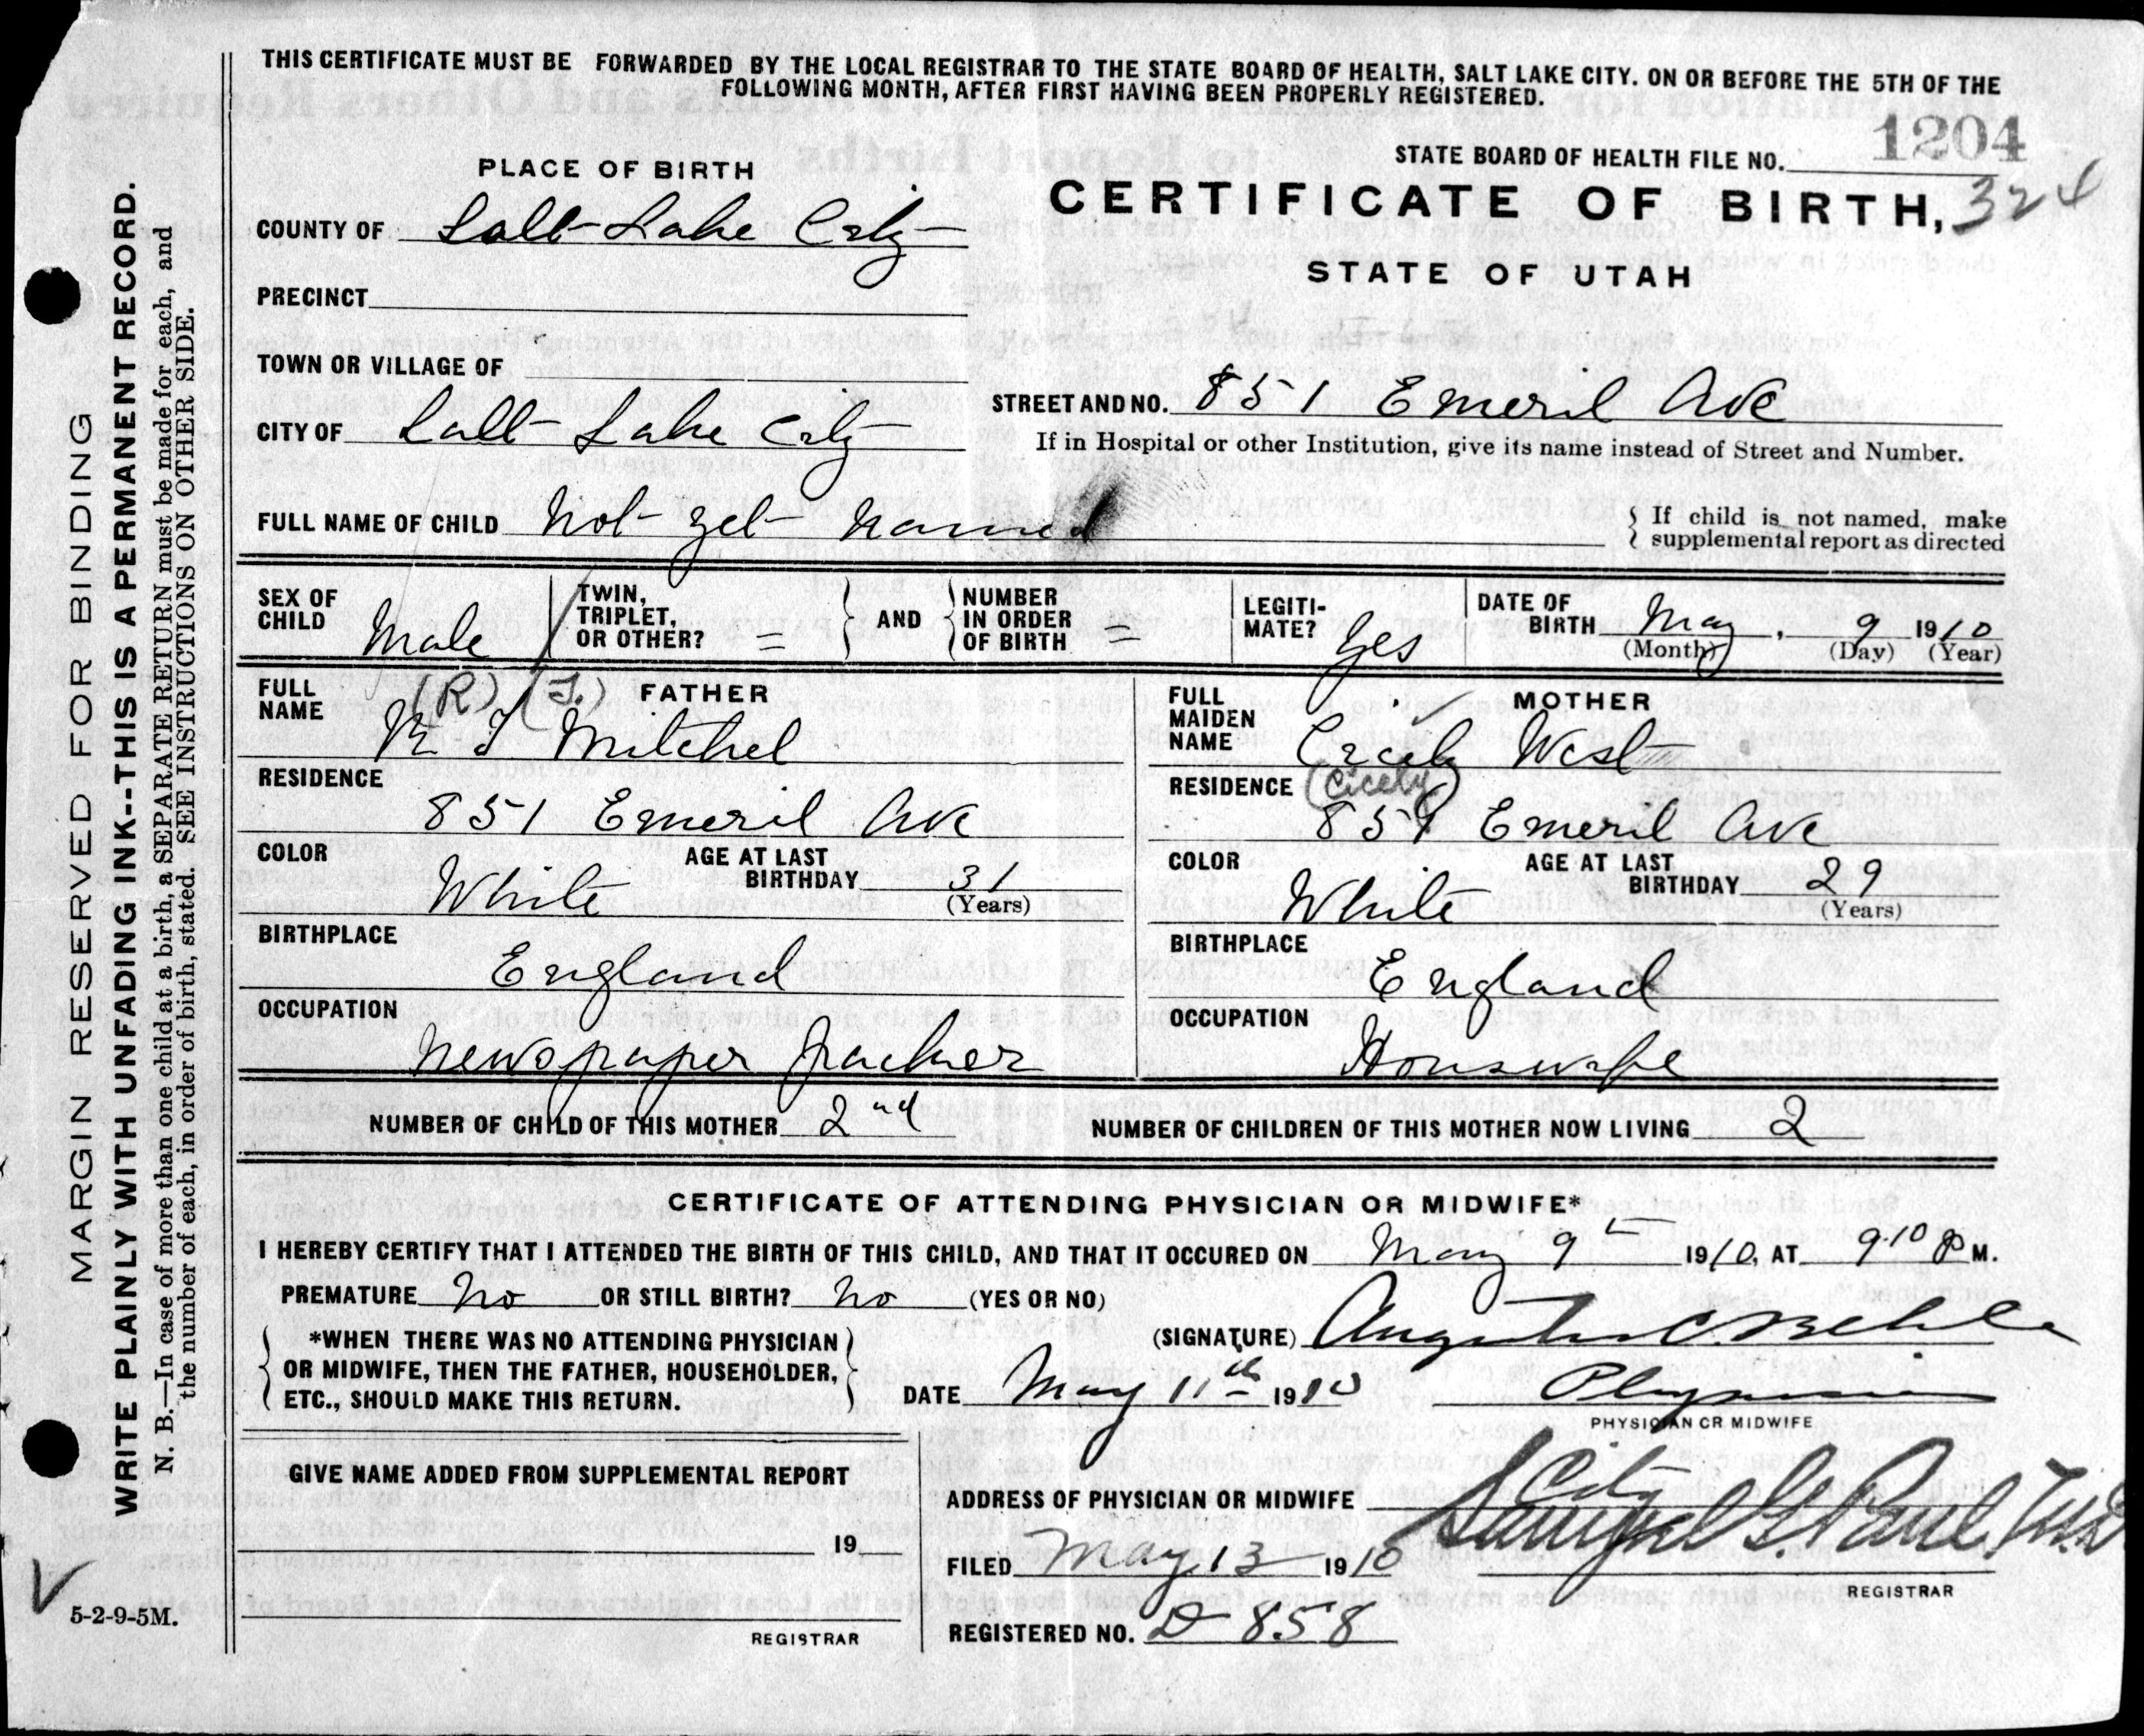 THIS CERTIFICATE MUST BE FORWARDED BY THE LOCAL REGISTRAR TO THE STATE BOARD OF HEALTH, SALT LAKE CITY. ON OR BEFORE THE 5TH OF THE
FOLLOWING MONTH, AFTER FIRST HAVING BEEN PROPERLY REGISTERED.
STATE BOARD OF HEALTH FILE NO. 1204
PLACE OF BIRTH
CERTIFICATE OF BIRTH, 324
STATE OF UTAH
COUNTY OF Salt Lake City
PRECINCT
TOWN OR VILLAGE OF
CITY OF Salt Lake City
STREET AND NO. 851 Emeril Ave
If in Hospital or other Institution, give its name instead of Street and Number.
FULL NAME OF CHILD Not yet named
If child is not named, make
supplemental report as directed
SEX OF CHILD Male
TWIN, TRIPLET, OR OTHER? =
AND
NUMBER IN ORDER OF BIRTH =
LEGITI-MATE? Yes
DATE OF BIRTH May, 9 1910
(Month) (Day) (Year)
FATHER
FULL NAME (R) (J.)
Mitchel
RESIDENCE
851 Emeril Ave
COLOR White
AGE AT LAST BIRTHDAY 31
(Years)
BIRTHPLACE
England
OCCUPATION
Newspaper
MOTHER
FULL MAIDEN NAME West
RESIDENCE (Cicely)
851 Emeril Ave
COLOR White
AGE AT LAST BIRTHDAY 29
(Years)
BIRTHPLACE
England
OCCUPATION
Houswife
NUMBER OF CHILD OF THIS MOTHER 2nd
NUMBER OF CHILDREN OF THIS MOTHER NOW LIVING 2
CERTIFICATE OF ATTENDING PHYSICIAN OR MIDWIFE*
I HEREBY CERTIFY THAT I ATTENDED THE BIRTH OF THIS CHILD, AND THAT IT OCCURED ON May 9th 1910, AT 9.10 P M.
PREMATURE No OR STILL BIRTH? No (YES OR NO)
*WHEN THERE WAS NO ATTENDING PHYSICIAN
OR MIDWIFE, THEN THE FATHER, HOUSEHOLDER,
ETC., SHOULD MAKE THIS RETURN.
(SIGNATURE) Augustus C Behle
DATE May 11th 1910
Physician
PHYSICIAN OR MIDWIFE
GIVE NAME ADDED FROM SUPPLEMENTAL REPORT
19
REGISTRAR
ADDRESS OF PHYSICIAN OR MIDWIFE City
FILED May 13 1910
Samuel G. Paul, M.D.
REGISTRAR
REGISTERED NO. D-858
MARGIN RESERVED FOR BINDING
WRITE PLAINLY WITH UNFADING INK--THIS IS A PERMANENT RECORD.
N. B.—In case of more than one child at a birth, a SEPARATE RETURN must be made for each, and
the number of each, in order of birth, stated. SEE INSTRUCTIONS ON OTHER SIDE.
5-2-9-5M.